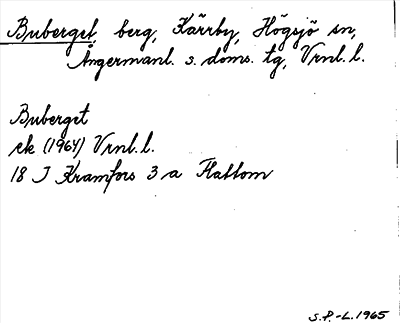 Buberget, berg, Kärrby, Högsjö sn,
Ångermanl. s. doms. tg, Vrnl. l.
Buberget
ek (1964) Vrnl. l.
18 J Kramfors 3 a Flattom
S.P.-L. 1965